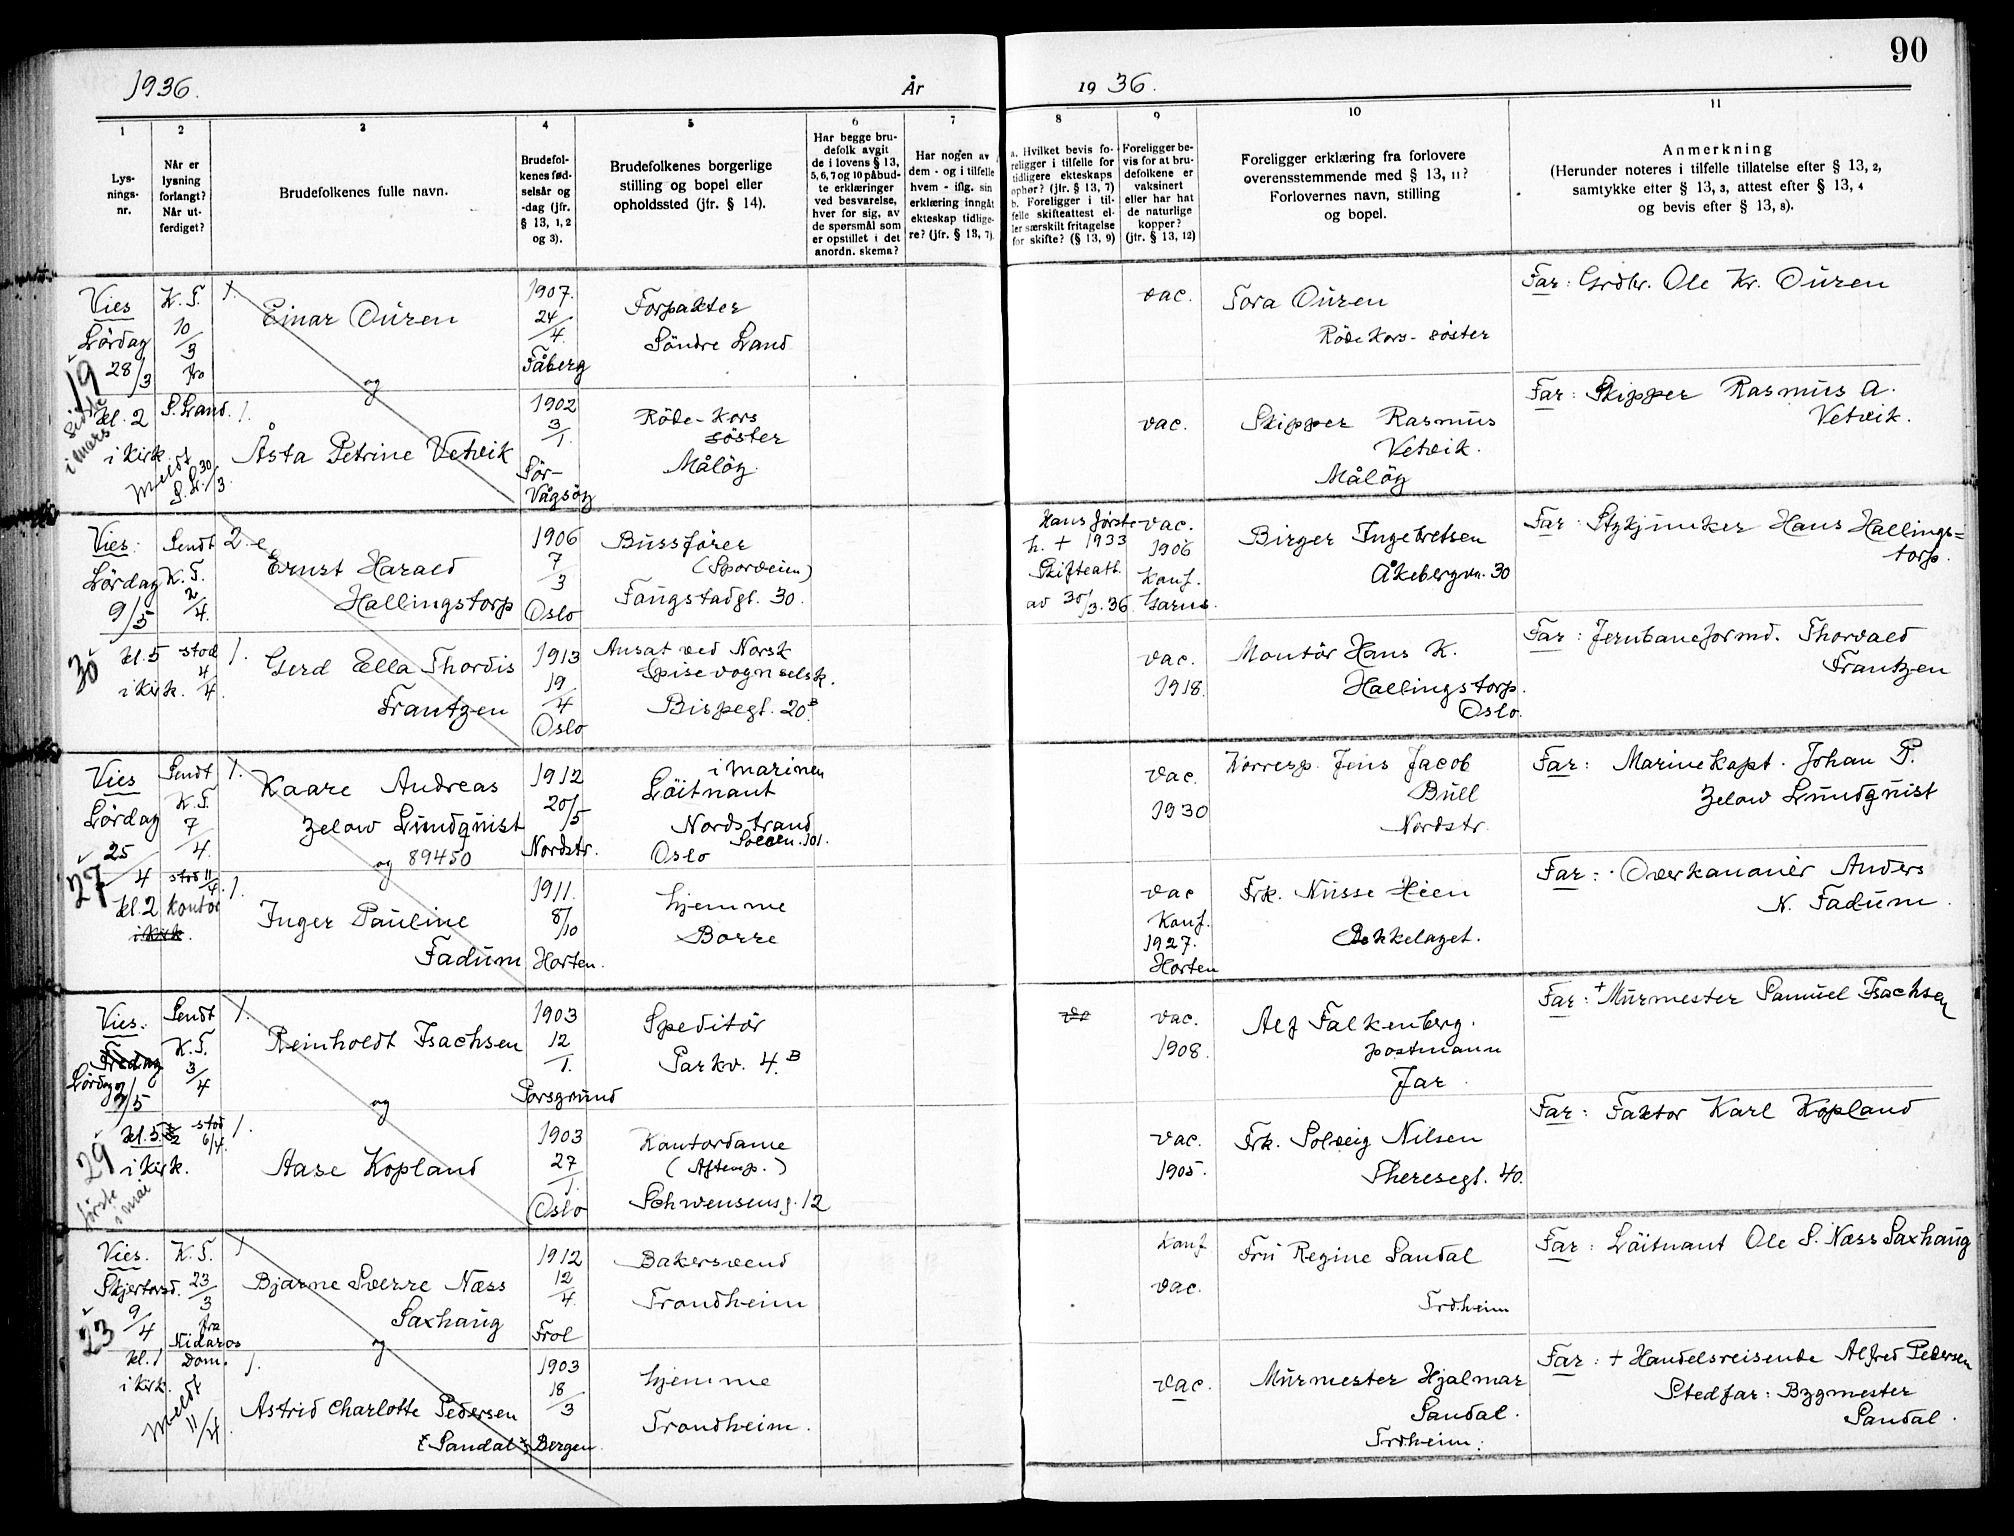 90
1936.
År
1936.
1
2
3
4
5
6
7
8
9
10
11
Lys-
nings-
nr.
Når er
lysning
forlangt?
Når ut-
ferdiget?
Brudefolkenes fulle navn.
Brudefol-
kenes fød-
selsår og
-dag (jfr.
§ 13, 1, 2
og 3).
Brudefolkenes borgerlige
stilling og bopel eller
opholdssted (jfr. § 14).
Har begge bru-
defolk avgit
de i lovens § 13,
5, 6, 7 og 10 påbud-
te erklæringer
ved besvarelse,
hver for sig, av
de spørsmål som
er opstillet i det
anordn. skema?
Har nogen av
dem - og i tilfelle
hvem - iflg. sin
erklæring inngåt
ekteskap tidlige-
re? (jfr. § 13, 7).
a. Hvilket bevis fo-
religger i tilfelle for
tidligere ekteskaps
ophør? (jfr. § 13, 7)
b. Foreligger i til-
felle skifteattest el-
ler særskilt fritagelse
for skifte? (§ 13, 9)
Foreligger be-
vis for at bru-
defolkene er
vaksinert
eller har hat
de naturlige
kopper?
(jfr. § 13, 12)
Foreligger erklæring fra forlovere
overensstemmende med § 13, 11?
Forlovernes navn, stilling
og bopel.
Anmerkning
(Herunder noteres i tilfelle tillatelse efter § 13, 2,
samtykke etter § 13, 3, attest efter § 13, 4
og bevis efter § 13, 8).
Vies
Lördag
28/3
19
siste
i mars
kl. 2
i kirk.
meldt
S. L. 30/3
K. T.
10/3
fra
S. Land.
1.
Einar Ouren
og
1907.
24/4
Fåberg
Forpakter
Söndre Land
vac.
Tora Ouren
Röde Kors-söster
Far: Grdbr. Ole Kr. Ouren
1.
Åsta Petrine Vetvik
1902
3/1.
Sör-
Vågsöy
Röde-Kors
söster
Målöy.
vac.
Skipper Rasmus
Vetvik.
Målöy
Far: Skipper Rasmus A.
Vetvik.
Vies:
Lördag
9/5
30
kl. 5
i kirk.
Sendt
K. T.
2/4.
stod
4/4.
2. e
Ernst Harald
Hallingstorp
1906
7/3
Oslo
Bussförer
(Sporveien)
Faugstadgt. 30.
Hans förste
h. + 1933
Skifteatt.
av 30/3.36.
vac.
1906
Konf.
Birger Ingebretsen
Åkebergvn. 30
Far: Stykjunker Hans Hallings=
torp.
1.
Gerd Ella Thordis
Frantzen
1913
19/4
Oslo
Ansat ved Norsk
Spisevognselsk.
Bispegt. 20B
vac.
1918.
Montör Hans K.
Hallingstorp.
Oslo.
Far: Jernbaneformd. Thorvald
Frantzen
Vies
Lördag
25/4
27
kl. 2
i kirk.
Sendt
K. T.
7/4.
stod 11/4.
kontor
1.
Kaare Andreas
Zelow Lundquist
og 89450
1912
20/5
Nordstr.
i marinen
Löitnant
Nordstrand
Oslo
vac.
1930
Korresp. Jens Jacob
Bull
Nordstr.
Far: Marinekapt. Johan P.
Zelow Lundquist
1.
Inger Pauline
Fadum
1911.
8/10
Horten.
hjemme
Borre
vac
Konf.
1927.
Horten
Frk. Nusse Hien
Bekkelaget.
Far: Overkanonér Anders
N. Fadum.
Vies.
Fredag
Lördag
2/5
kl. 5
29
i kirk.
förste
i mai
Sendt
K. T.
3/4
stod
6/4.
1.
Reinholdt Isachsen
og
1903
12/1.
Porsgrund
Speditör
Parkv. 4.B
vac.
1908.
Alf Falkenberg.
postmann
Jar.
Far: + Murmester Samuel Isachsen
1.
Aase Kopland
1903
27/1.
Oslo
Kontordame
(Aftenp.)
Schwensensg. 12
vac.
1905.
Frk. Solveig Nilsen
Theresegt. 40.
Far: Faktor Karl Kopland
Vies.
Skjertorsd.
9/4
23
kl. 1
i kirk.
meldt
11/4.
K. T.
23/3
fra
Nidaros
Dom.
1
Bjarne Sverre Næss
Saxhaug
og
1912
12/4.
Frol
Bakersvend
Trondheim
Konf
vac.
Fru Regine Sandal
Trdheim
Far: Löitnant Ole S. Næss Saxhaug
1.
Astrid Charlotte Pedersen
"Sandal"
1903
18/3
Bergen.
hjemme
Trondheim.
vac.
Murmester Hjalmar
Sandal.
Trdheim.
Far: + Handelsreisende Alfred Pedersen
Stedfar: Bygmester
Sandal.